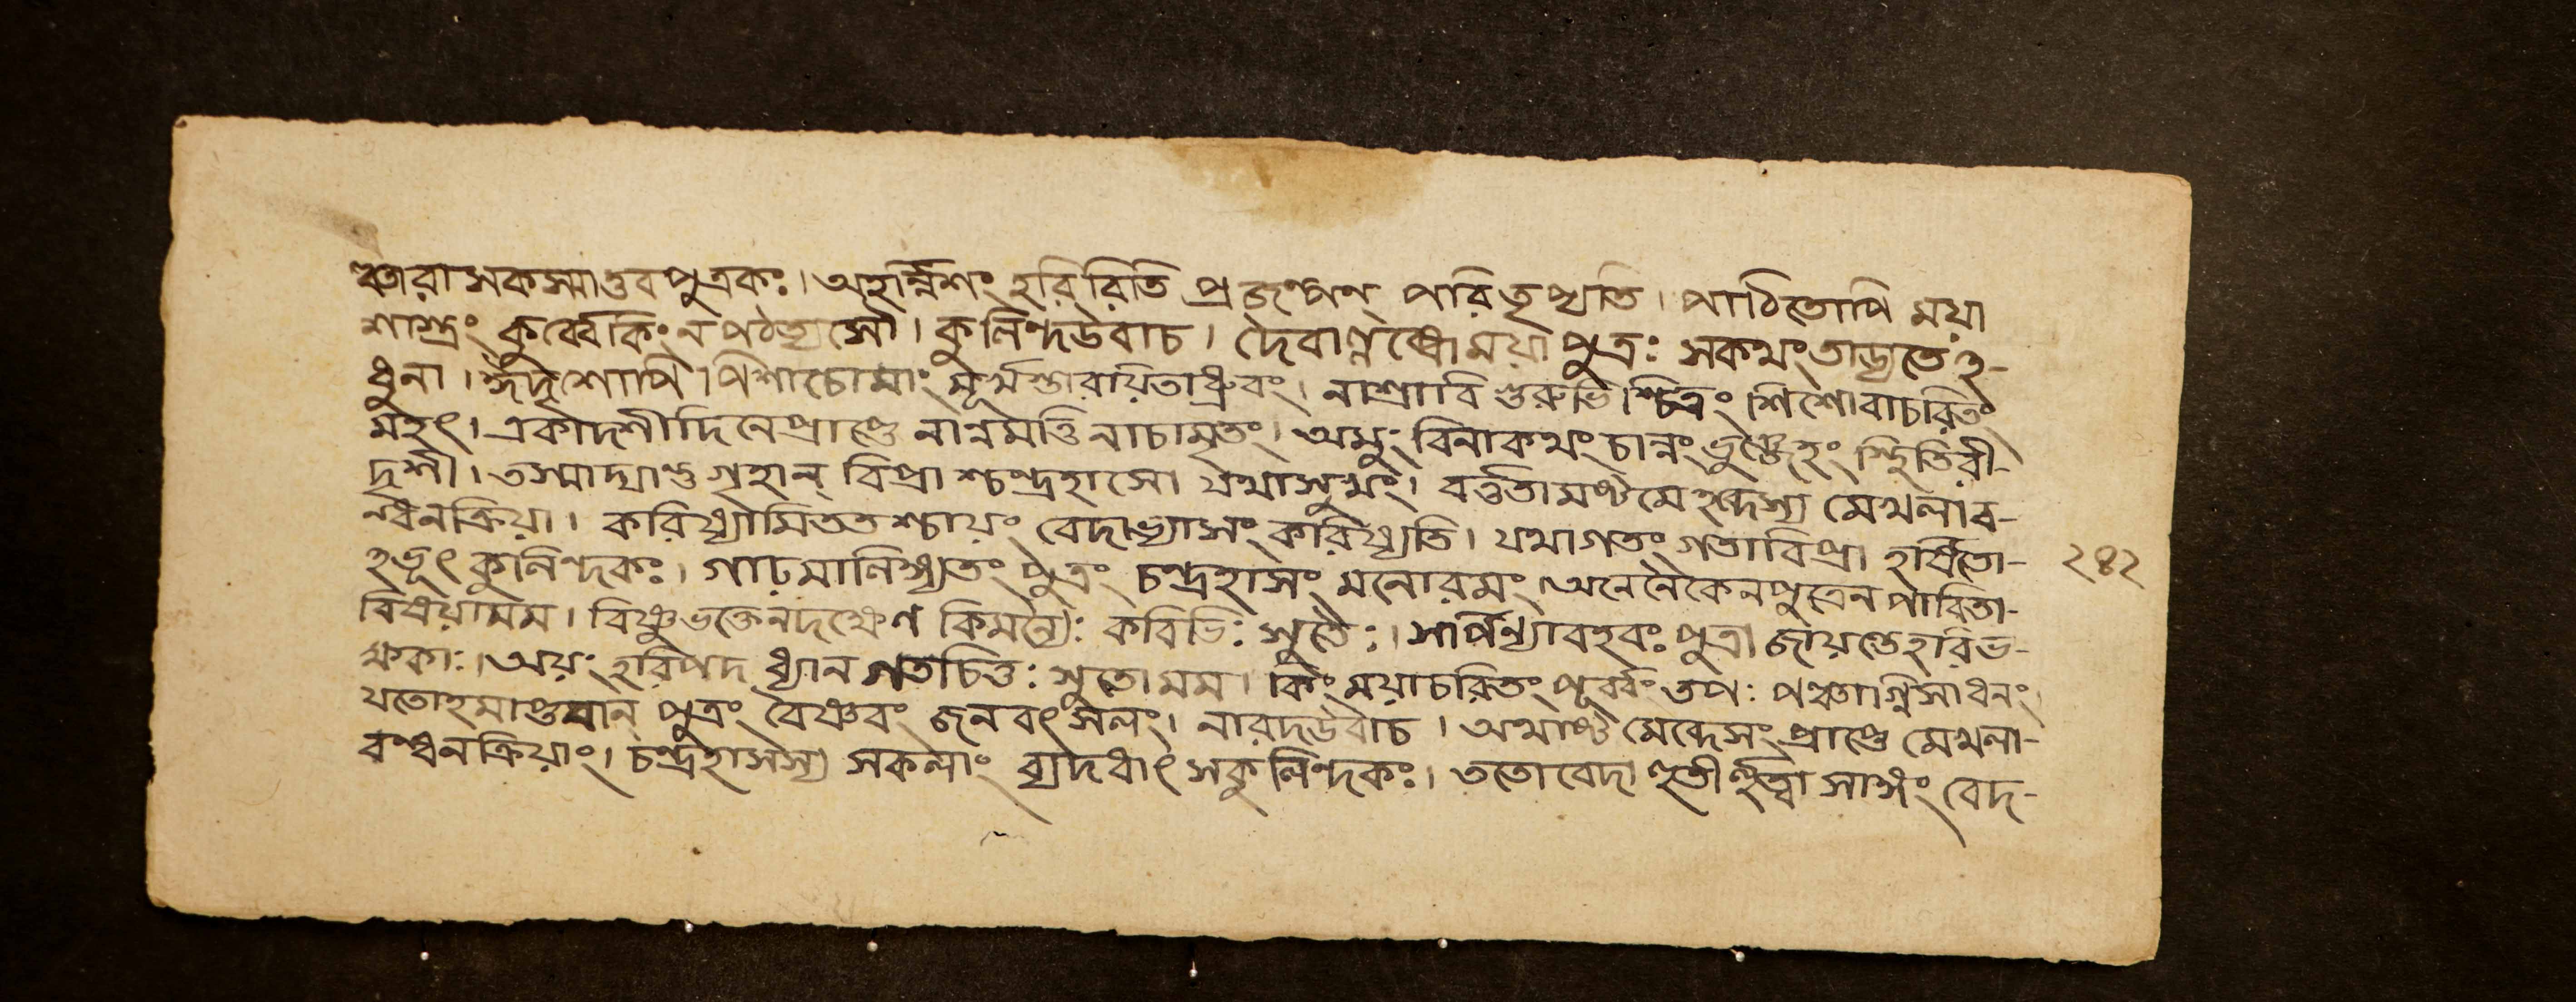 ঞ্চারাসকস্মাত্তবপুত্রকঃ। অহর্ন্নিশং হরিরিতি প্রজল্পন্ পরিতৃপ্যতি। পাঠিতোপি ময়া
শাস্ত্রং কুর্ব্বেকিংন পঠত্যসৌ। কুলিন্দউবাচ। দৈবাল্লব্ধোময়া পুত্রঃ সকথংতাড্যতেঽ-
ধুনা। ঈদৃশোপি পিশাচোমাং মূর্খস্তারয়িতাধ্রুবং। নাশ্রাবি গুরুভিশ্চিত্রং শিশোবাচরিতং
মহৎ। একাদশীদিনেপ্রাপ্তে নান্নমত্তি নাচামৃতং। অমুং বিনাকথং চান্নং ভুঞ্জেহং
দৃশী। তস্মাদ্যান্তু গৃহান্ বিপ্রাশ্চন্দ্রহাসো যথাসুখং। বর্ত্ততামষ্টমেহব্দেস্য মেখলাব-
ন্ধনক্রিয়া। করিষ্যামিততশ্চায়ং বেদাভ্যাসং করিষ্যতি। যথাগতং গতাবিপ্রা হর্ষিতো-
ঽভূৎ কুলিন্দকঃ। গাঢ়মালিঙ্গ্যতং পুত্রং চন্দ্রহাসং মনোরমং। অনেনৈকেনপুত্রেন পাবিতা- ২৪২
বিষয়ামম। বিষ্ণুভক্তেনদক্ষেণ কিমন্যৈঃ কবিভিঃ সুতৈঃ। সর্পিন্যাবহবঃ পুত্রা জায়ন্তেহরিভ-
ক্ষকাঃ। অয়ং হরিপদ ধ্যান গতচিত্তঃ সুতোমম। কিং ময়াচরিতং পূর্ব্বং তপঃ পঞ্চাগ্নিসাধনং।
যতোহমাপ্তবান্ পুত্রং বৈষ্ণবং জনবৎসলং। নারদউবাচ। অথাষ্টমেব্দেসং প্রাপ্তে মেখলা-
বন্ধনক্রিয়াং। চন্দ্রহাসস্য সকলাং ব্যদধাৎ সকুলিন্দকঃ। ততোবেদা সাঙ্গং বেদ-